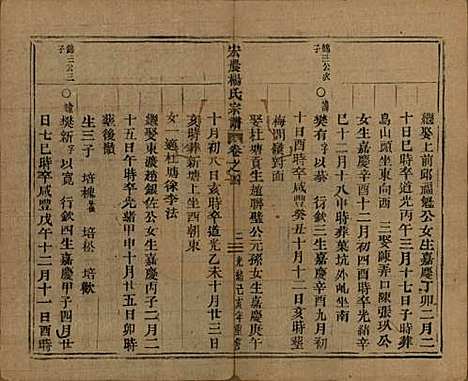 繼娶上前邱福魁公女生嘉慶丁卯二月二
十日巳時卒道光丙午三月十七日子時葬
島山頭石塘坐東向西 三娶陳弄口陳張公
女生嘉慶辛酉十二月初四酉時卒光緒辛
巳十二月十八日申時葬葉坑外嵐坐南
錦三公次子
諱樊有 字以恭 行欽三生嘉慶辛酉九月初
十日酉時卒咸豐癸丑十月十二日亥時塟
梅開嶺對面
娶杜塘貢生趙聯璧公元孫女生嘉慶庚午
宏農楊氏宗譜 卷之 二 光緒己亥年重修
十月初八日亥時卒道光乙未十月廿三日
亥時葬新塘上坐西朝東
女一適杜塘徐李法
繼娶東瀆趙銀佐公女生嘉慶丙子二月二
十五日辰時卒光緒甲申十月廿五日卯時
葬後墩
錦三公三子
諱樊新 字以寬 行欽四生嘉慶甲子四月廿
生三子 培棟 培松 培歡
日七巳時卒咸豐戊午十二月十一日酉時